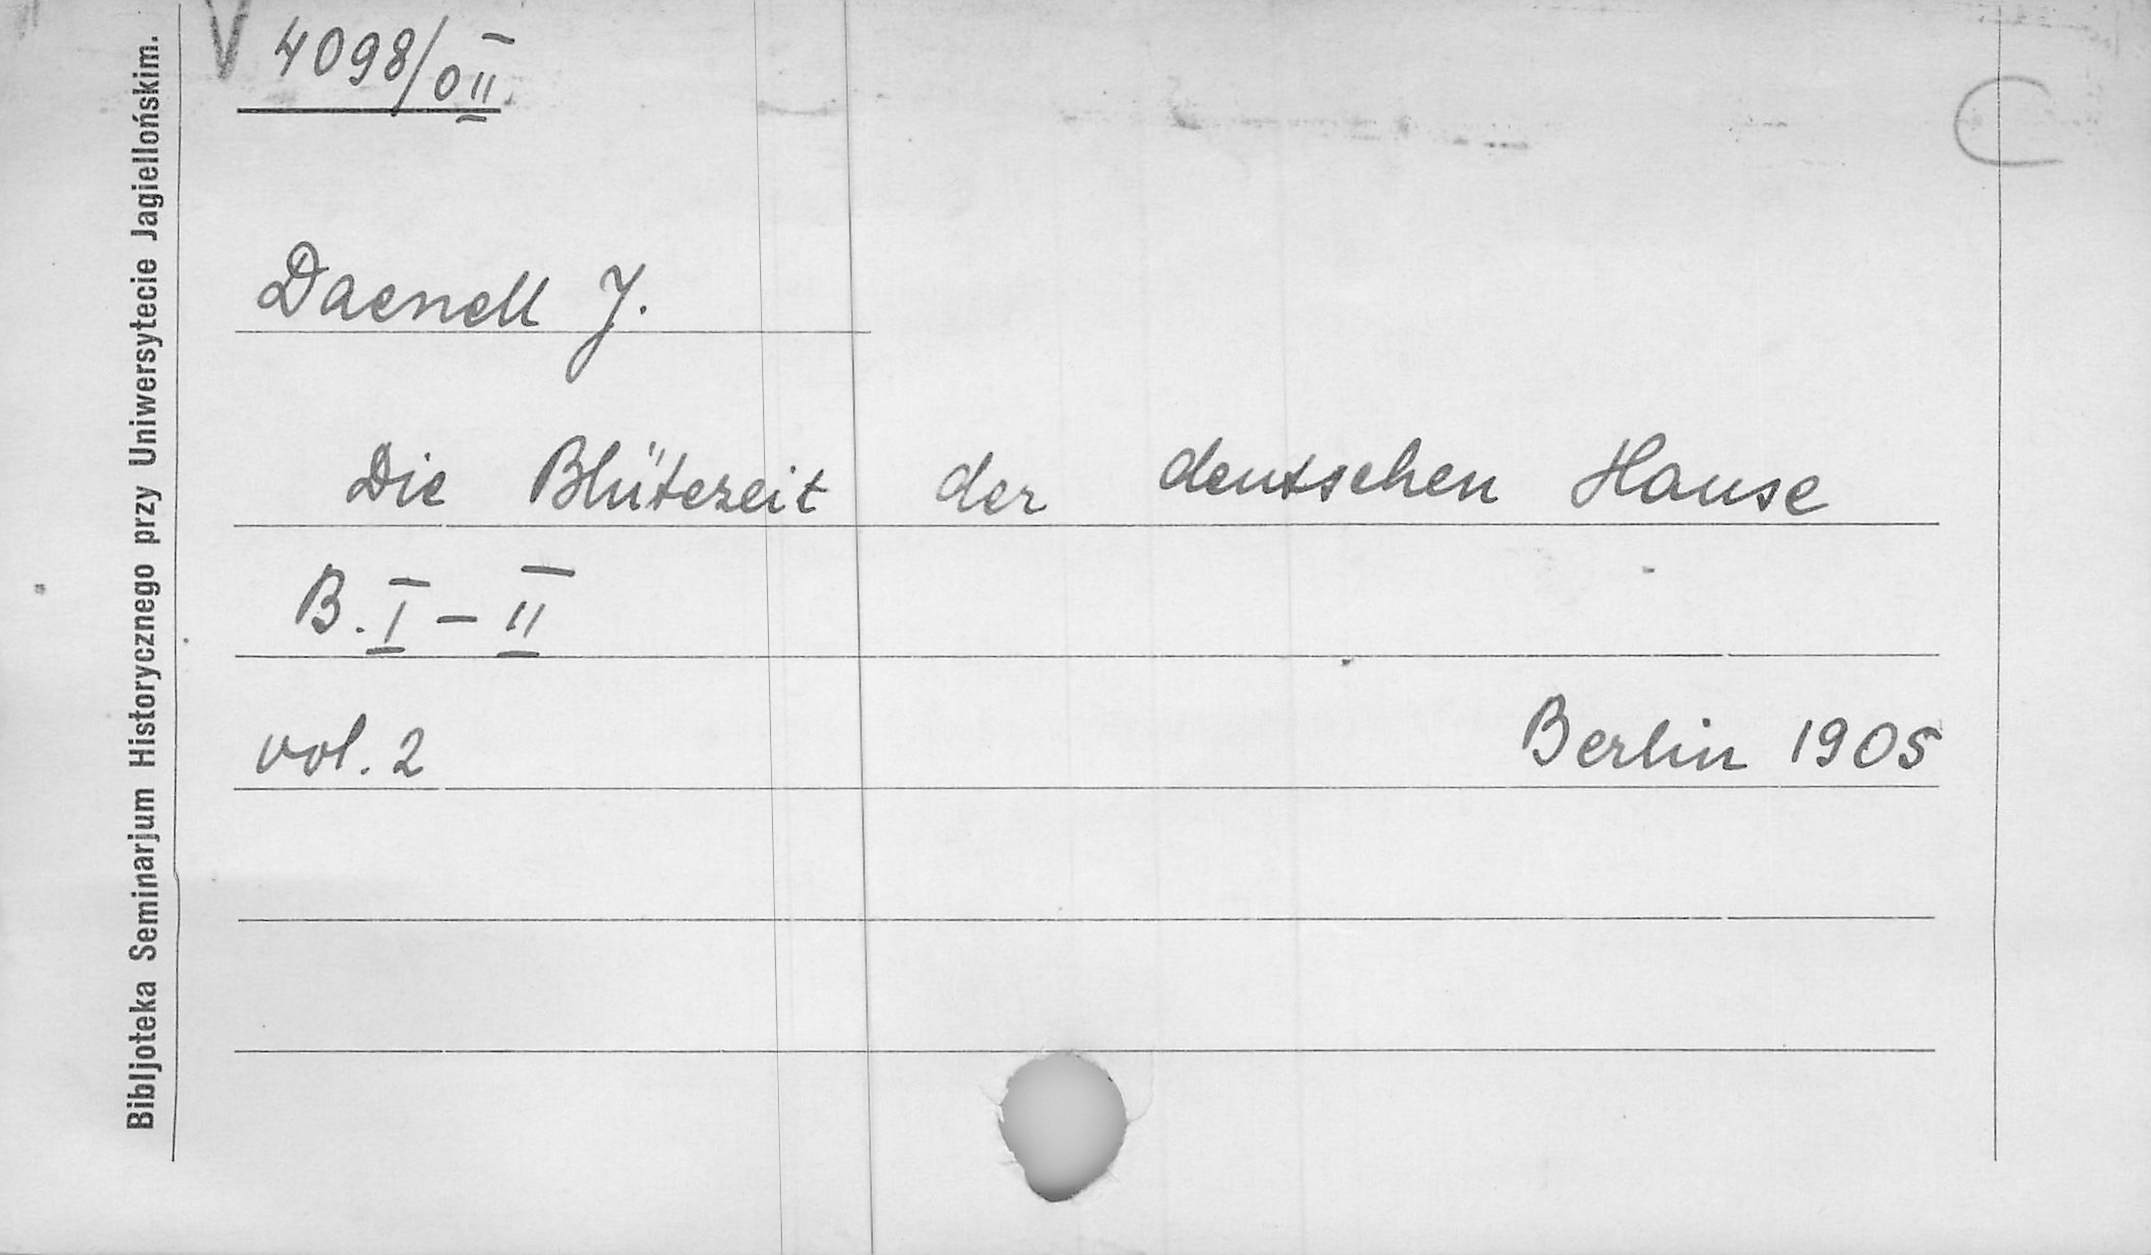 V 4098/0 II
C
Daenell J.
Die Blütezeit der deutschen Hanse
B. I – II
vol. 2 Berlin 1905
Bibljoteka Seminarjum Historycznego przy Uniwersytecie Jagiellońskim.